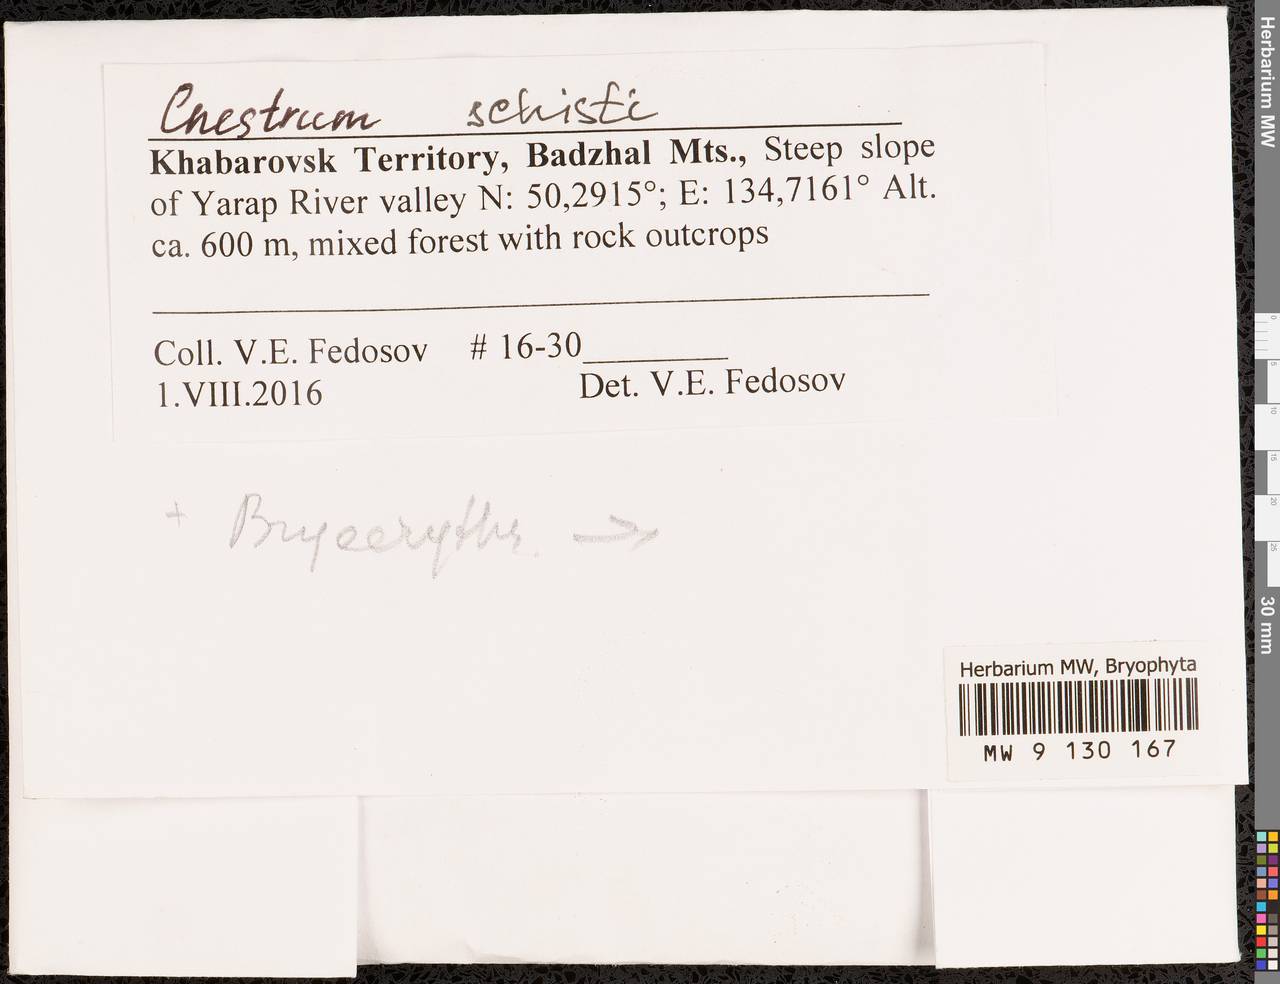 Cnestrum schisti
Khabarovsk Territory, Badzhal Mts., Steep slope
of Yarap River valley N: 50,2915°; E: 134,7161° Alt.
ca. 600 m, mixed forest with rock outcrops
Coll. V.E. Fedosov # 16-30
1.VIII.2016
Det. V.E. Fedosov
+ →
Herbarium MW, Bryophyta
MW 9 130 167
Herbarium MW
0
5
10
15
20
25
30 mm